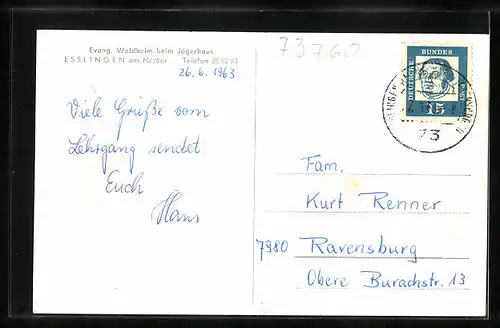 Evang. Waldheim beim Jägerhaus
ESSLINGEN am Neckar Telefon 358293
26.6.1963
73760
Viele Grüße vom
Lehrgang sendet
Euch
Hans
DEUTSCHE BUNDES POST
15
73
Fam.
Kurt Renner
7980 Ravensburg
Obere Burachstr. 13